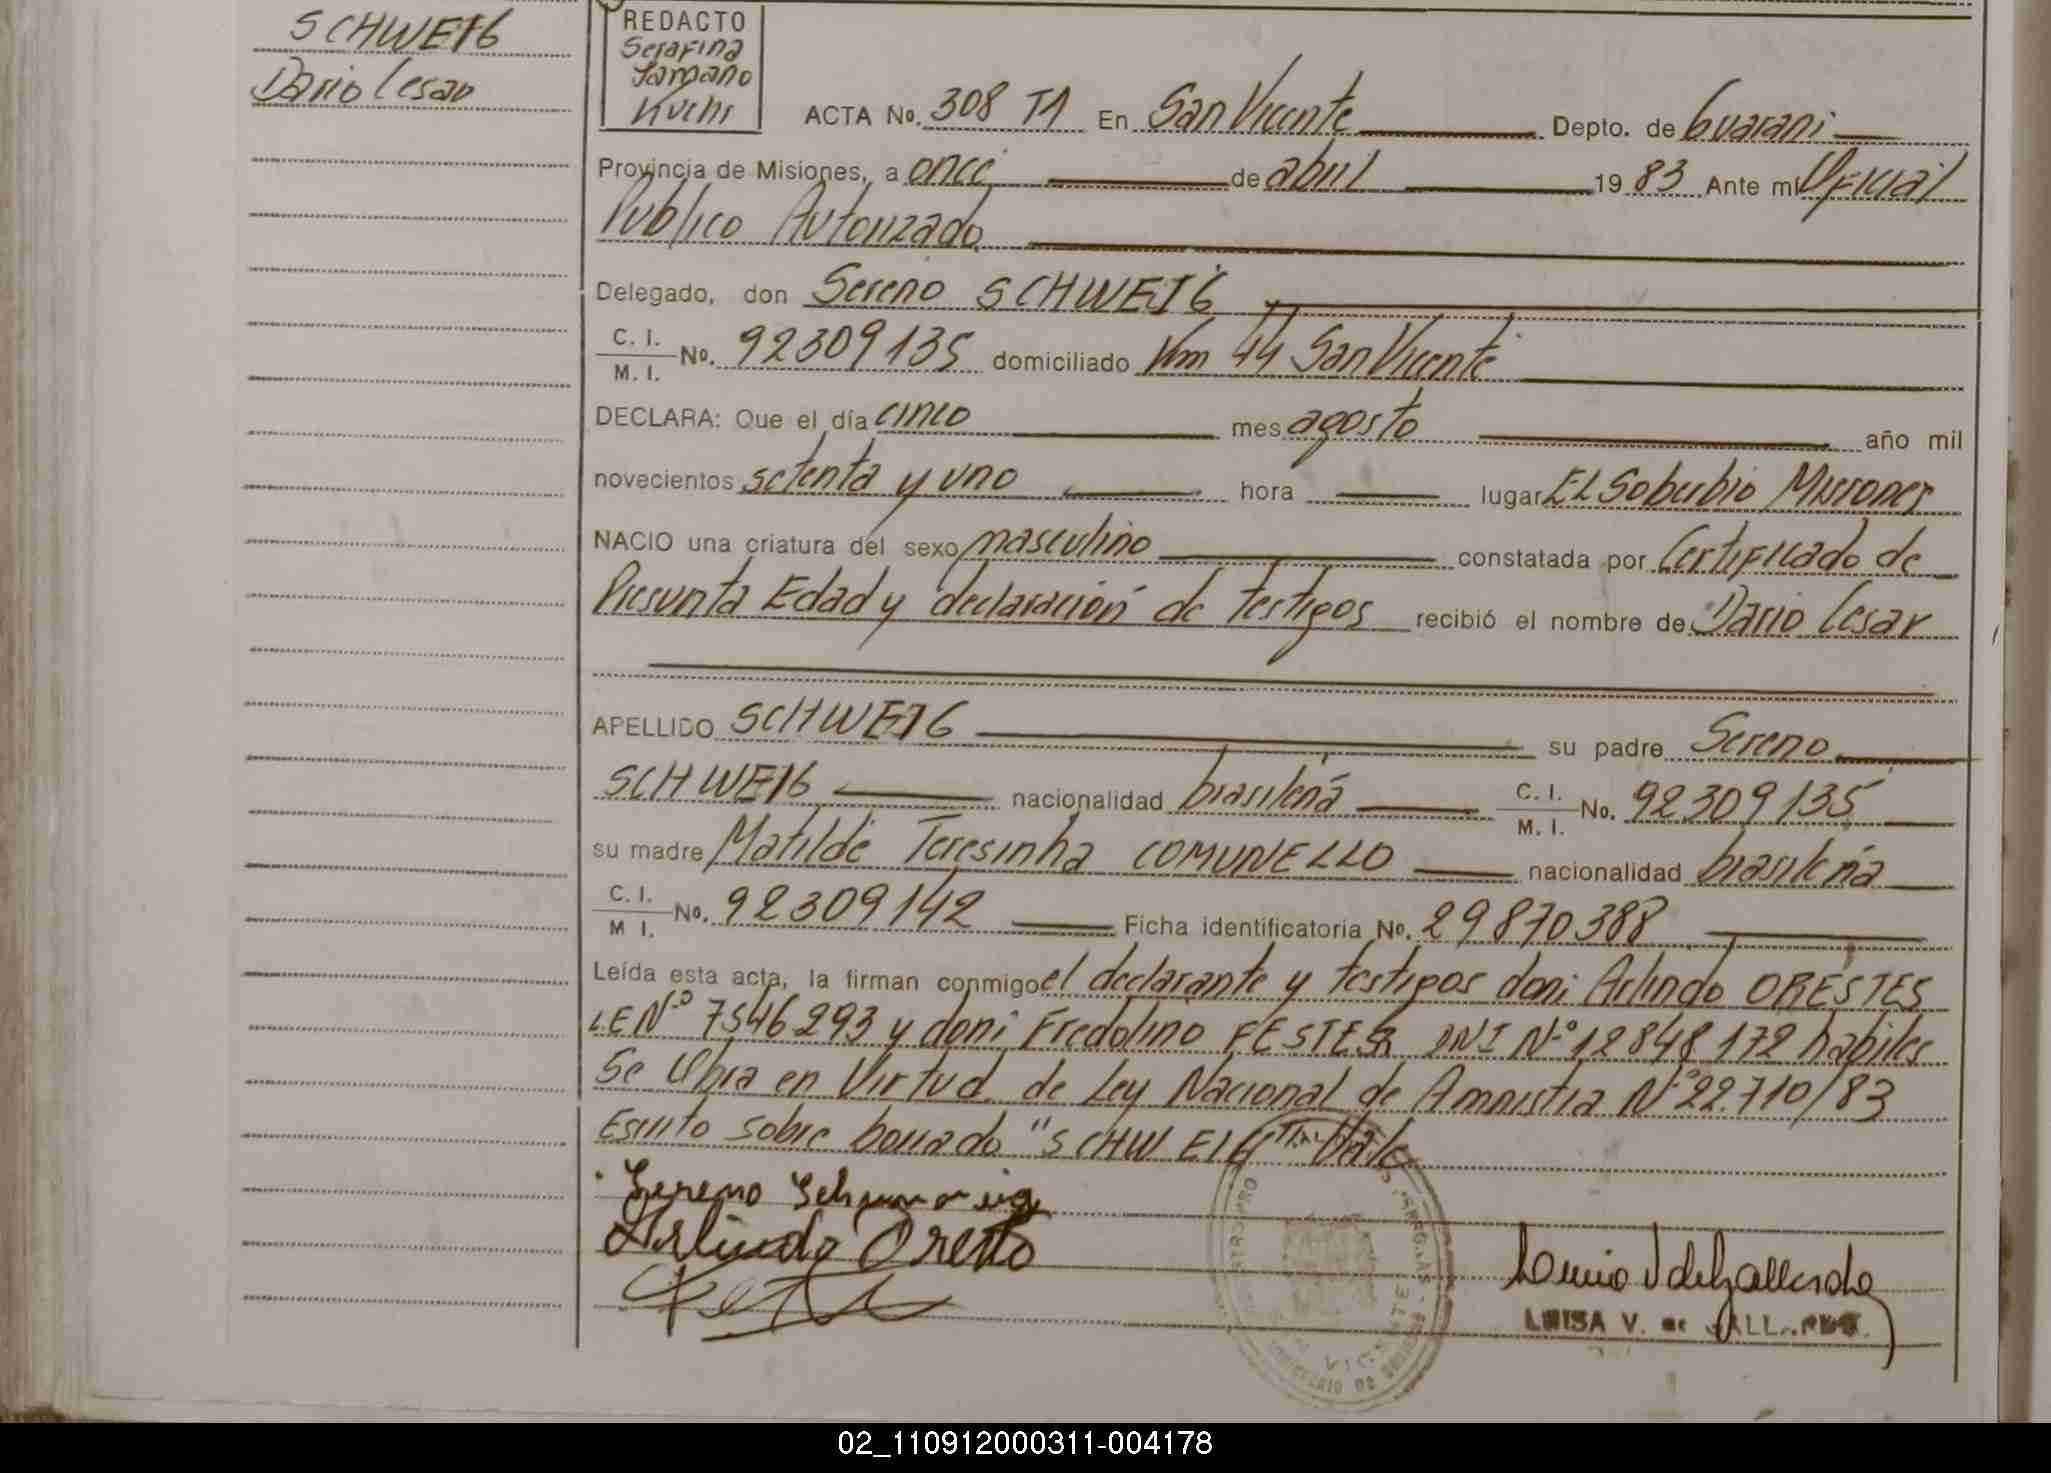 SCHWEIG
Dario Cesar
REDACTO
Serafina
Samaño
Kuchi
ACTA No. 308 T1 En San Vicente Depto. de Guarani
Provincia de Misiones, a once de abril 1983 Ante mi Oficial
Publico Autorizado
Delegado, don Sereno SCHWEIG
C. I.
M. I.
No. 92309135 domiciliado Km 44 San Vicente
DECLARA: Que el día cinco mes agosto año mil
novecientos setenta y uno hora lugar EL Soberbio Misiones
NACIO una criatura del sexo masculino constatada por Certificado de
Presunta Edad y declaración de testigos recibió el nombre de Dario Cesar
APELLIDO SCHWEIG su padre Sereno
SCHWEIG nacionalidad brasileña C. I.
M. I. No. 92309135
su madre Matilde Teresinha COMUNELLO nacionalidad brasileña
C. I.
M I.
No. 92309142 Ficha identificatoria No. 29870388
Leída esta acta, la firman conmigo el declarante y testigos don: Arlindo ORESTES
LE Nº 7546293 y don: Fredolino FESTER DNI Nº 12848172 habiles
Se Labra en Virtud de Ley Nacional de Amnistia Nº 22.710/83
Escrito sobre borrado "SCHWEIG" Vale
Sereno
Arlindo Oresto
LUISA V. de GALLARDO
02_110912000311-004178